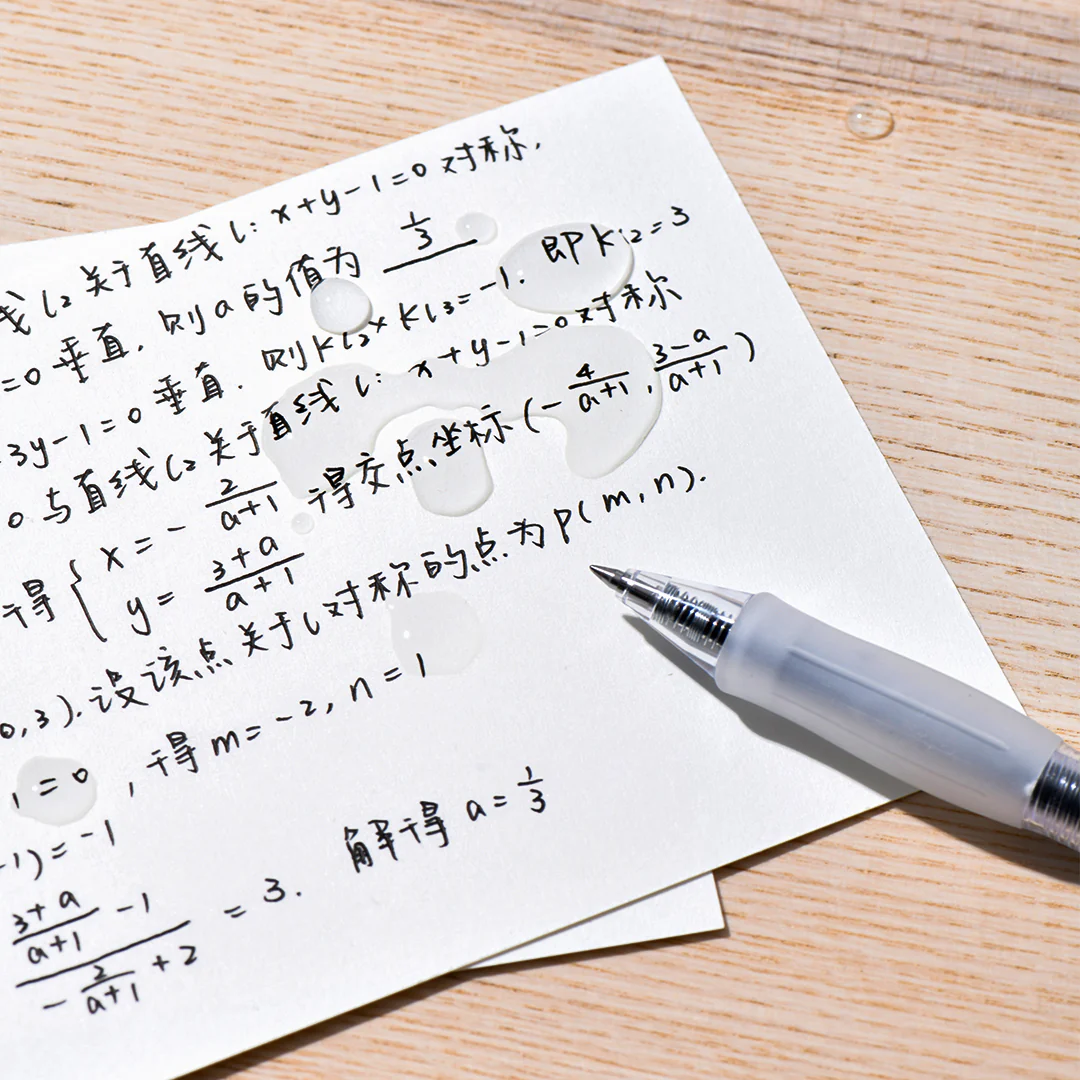 线l₂关于直线l: x+y-1=0对称,
=0垂直, 则a的值为 1/3
3y-1=0垂直. 则kl₂×kl₃=-1. 即kl₂=3
0与直线l₂关于直线l: x+y-1=0对称
得{x=-2/(a+1) y=(3+a)/(a+1) 得交点坐标(-4/(a+1), (3-a)/(a+1))
0,3).设该点关于l对称的点为P(m,n).
1=0, 得m=-2, n=1
-1)=-1
((3+a)/(a+1) -1)/(-2/(a+1) +2) =3. 解得a=1/3